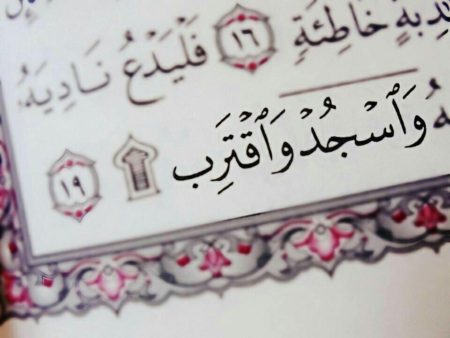 خَاطِئَةٍ ١٦ فَلْيَدْعُ نَادِيَهُۥ
وَٱسْجُدْ وَٱقْتَرِب ۩ ١٩